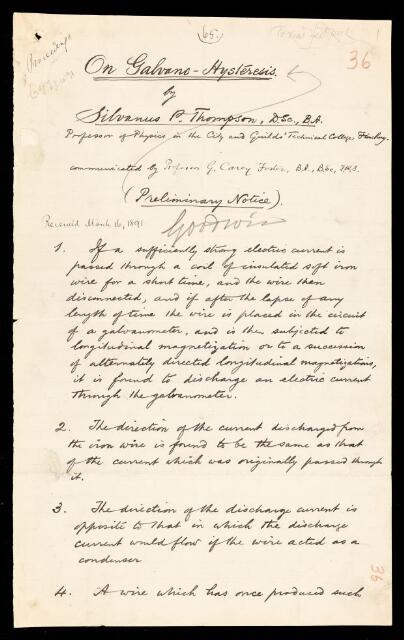 (65)
Proceedings
36
On Galvano-Hysteresis.
by
Silvanus P. Thompson, D.Sc., B.A.
Professor of Physics in the City and Guilds' Technical College, Finsbury.
communicated by Professor G. Carey Foster, B.A., B.Sc., F.R.S.
(Preliminary Notice).
Received March 16, 1891
Goodwin
1. If a sufficiently strong electric current is
passed through a coil of insulated soft iron
wire for a short time, and the wire then
disconnected, and if after the lapse of any
length of time the wire is placed in the circuit
of a galvanometer, and is then subjected to
longitudinal magnetization or to a succession
of alternately directed longitudinal magnetizations,
it is found to discharge an electric current
through the galvanometer.
2. The direction of the current discharged from
the iron wire is found to be the same as that
of the current which was originally passed through
it.
3. The direction of the discharge current is
opposite to that in which the discharge
current would flow if the wire acted as a
condenser
36
4. A wire which has once produced such